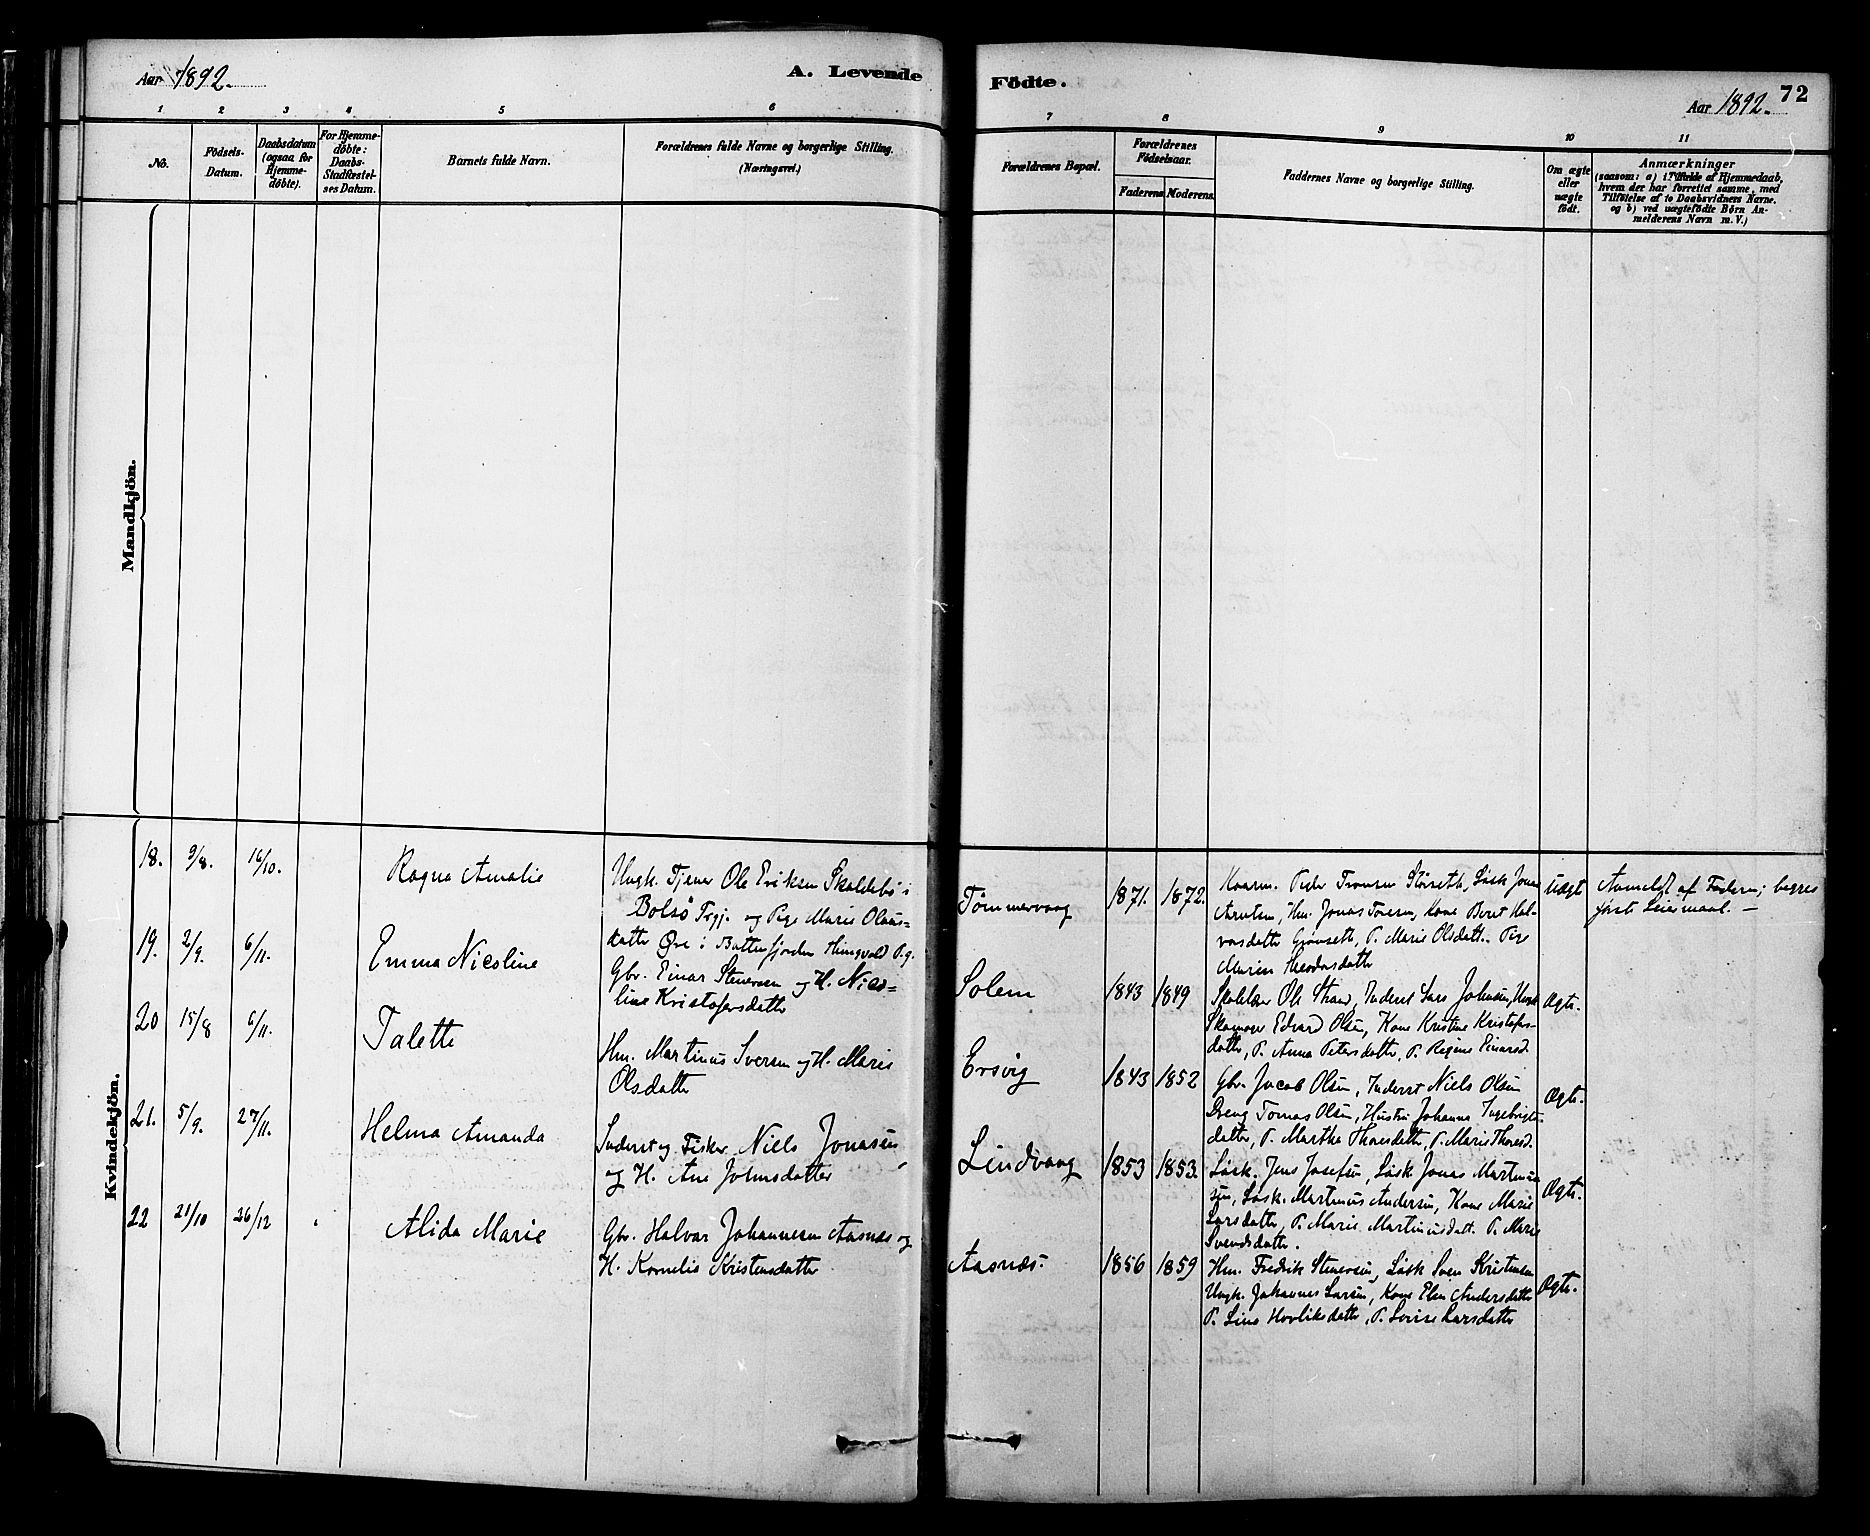 Aar 1892.
A. Levende Födte.
Aar 1892.
72
1 2 3 4 5 6 7 8 9 10 11
No.
Födsels-
Datum.
Daabsdatum
(ogsaa for
Hjemme-
döbte).
For Hjemme-
döbte:
Daabs-
Stadfæstel-
ses Datum.
Barnets fulde Navn.
Forældrenes fulde Navne og borgerlige Stilling.
(Næringsvei.)
Forældrenes Bopæl.
Forældrenes
Födselsaar.
Faderens Moderens
Faddernes Navne og borgerlige Stilling.
Om ægte
eller
uægte
født.
Anmærkninger
(saasom: a) i Tilfælde af Hjemmedaab,
hvem der har forrettet samme, med
Tilföielse af to Daabsvidners Navne.
og b) ved uægtefödte Börn An-
melderens Navn m. V.)
Mandkjön.
Kvindekjön.
18. 9/8. 16/10.
Ragna Amalie
Ungk. Tjener Ole Eriksen Skaldebø i
Bolsø Prgj. og Pige Marie Olaus-
datter Øre i Battenfjorden P.g.
Tømmervaag
1871. 1872.
Peder Størseth, Løsk Jonas
Arntsen, Hm. Jonas Toresen, Kone Beret Hal-
vorsdatter Grønseth, P. Marie Olsdatt. Pige
Marien Theodorsdatter
Uægt
Anmeldt af Faderen; begges
første Leiermaal. —
19. 2/9. 6/11.
Emma Nicoline
Gbr. Einar Stenersen og H. Nico-
line Kristofersdatter
Solem
1843 1849
Skolelær Ole Strand, Inderst Lars Johnsen, Ungk
Skomager Edvard Olsen, Kone Kristine Kristofers-
datter, P. Anna Petersdatter, P. Regine Einarsd.
Ægte.
20 15/8 6/11.
Talette
Hm. Martinus Iversen og H. Marie
Olsdatter
Ersvig
1843 1852
Gbr. Jacob Olsen, Inderst Niels Olsen
Dreng Tomas Olsen, Hustru Johanna Ingebrigts-
datter, P. Martha Thoresdatter, P. Marie Thoresd.
Ægte.
21. 5/9. 27/11.
Helma Amanda
Inderst og Fisker Niels Jonassen
og H. Ane Johnsdatter
Lindvaag
1853 1853.
Løsk. Jens Josefsen, Løsk Jonas Martinus-
sen, Løsk. Martinus Andersen, Kone Marie
Larsdatter, P. Marie Martinusdatt. P. Marie
Svendsdatter.
Ægte.
22 21/10 26/12
Alida Marie
Gbr. Halvar Johannesen Aasnæs og
H. Kornelia Kristensdatter
Aasnæs.
1856 1859
Hm. Fredrik Stenersen, Løsk Sven Kristensen
Ungk. Johannes Larsen, Kone Elen Andersdatter
P. Line Hovliksdatter, P. Lovise Larsdatter
Ægte.